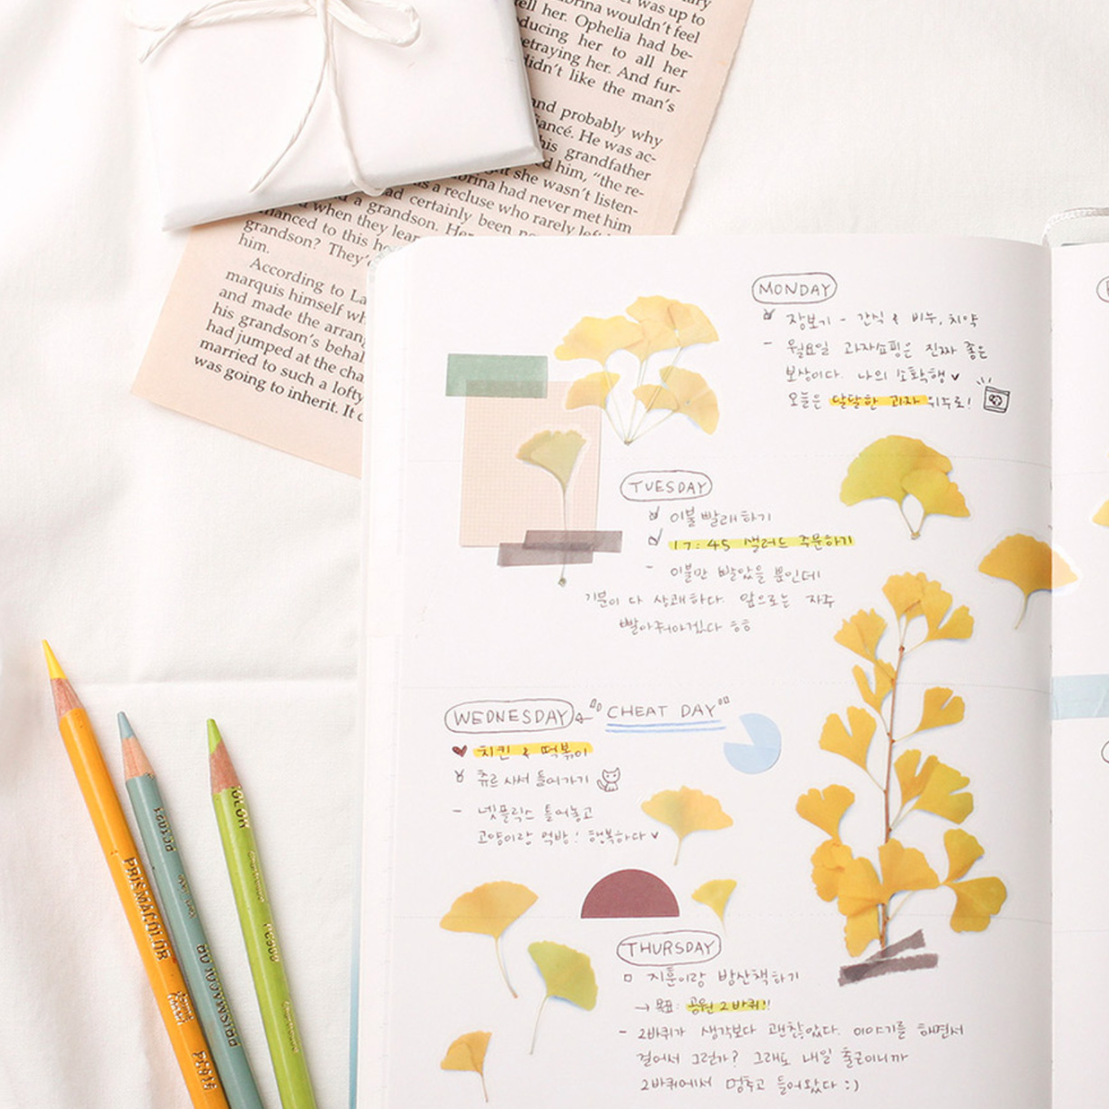 was up to
brina wouldn't feel
ell her. Ophelia had be-
ducing her to all her
etraying her. And fur-
didn't like the man's
and probably why
iancé. He was ac-
his grandfather
ed him, "the re-
she wasn't listen-
brina had never met him
s a recluse who rarely left
ad certainly been
a grandson. Her
d when they lear
hanced to this ho
grandson? They'
him.
According to La
marquis himself wh
and made the arran
his grandson's behal
had jumped at the cha
married to such a lofty
was going to inherit. It c
MONDAY
장보기 - 간식 & 비누, 치약
- 월요일 과자쇼핑은 진짜 좋은
보상이다. 나의 소확행
오늘은 달달한 과자 위주로!
TUESDAY
이불 빨래하기
17:45 샐러드 주문하기
- 이불만 빨았을 뿐인데
기분이 다 상쾌하다. 앞으로는 자주
빨아줘야겠다 ㅎㅎ
WEDNESDAY ← "CHEAT DAY"
치킨 & 떡볶이
츄르 사서 들어가기
- 넷플릭스 틀어놓고
고양이랑 먹방! 행복하다
THURSDAY
지훈이랑 밤산책하기
→ 목표: 공원 2바퀴!!
- 2바퀴가 생각보다 괜찮았다. 이야기를 하면서
걸어서 그런가? 그래도 내일 출근이니까
2바퀴에서 멈추고 들어왔다 :)
PRISMACOLOR
PRISMACOLOR